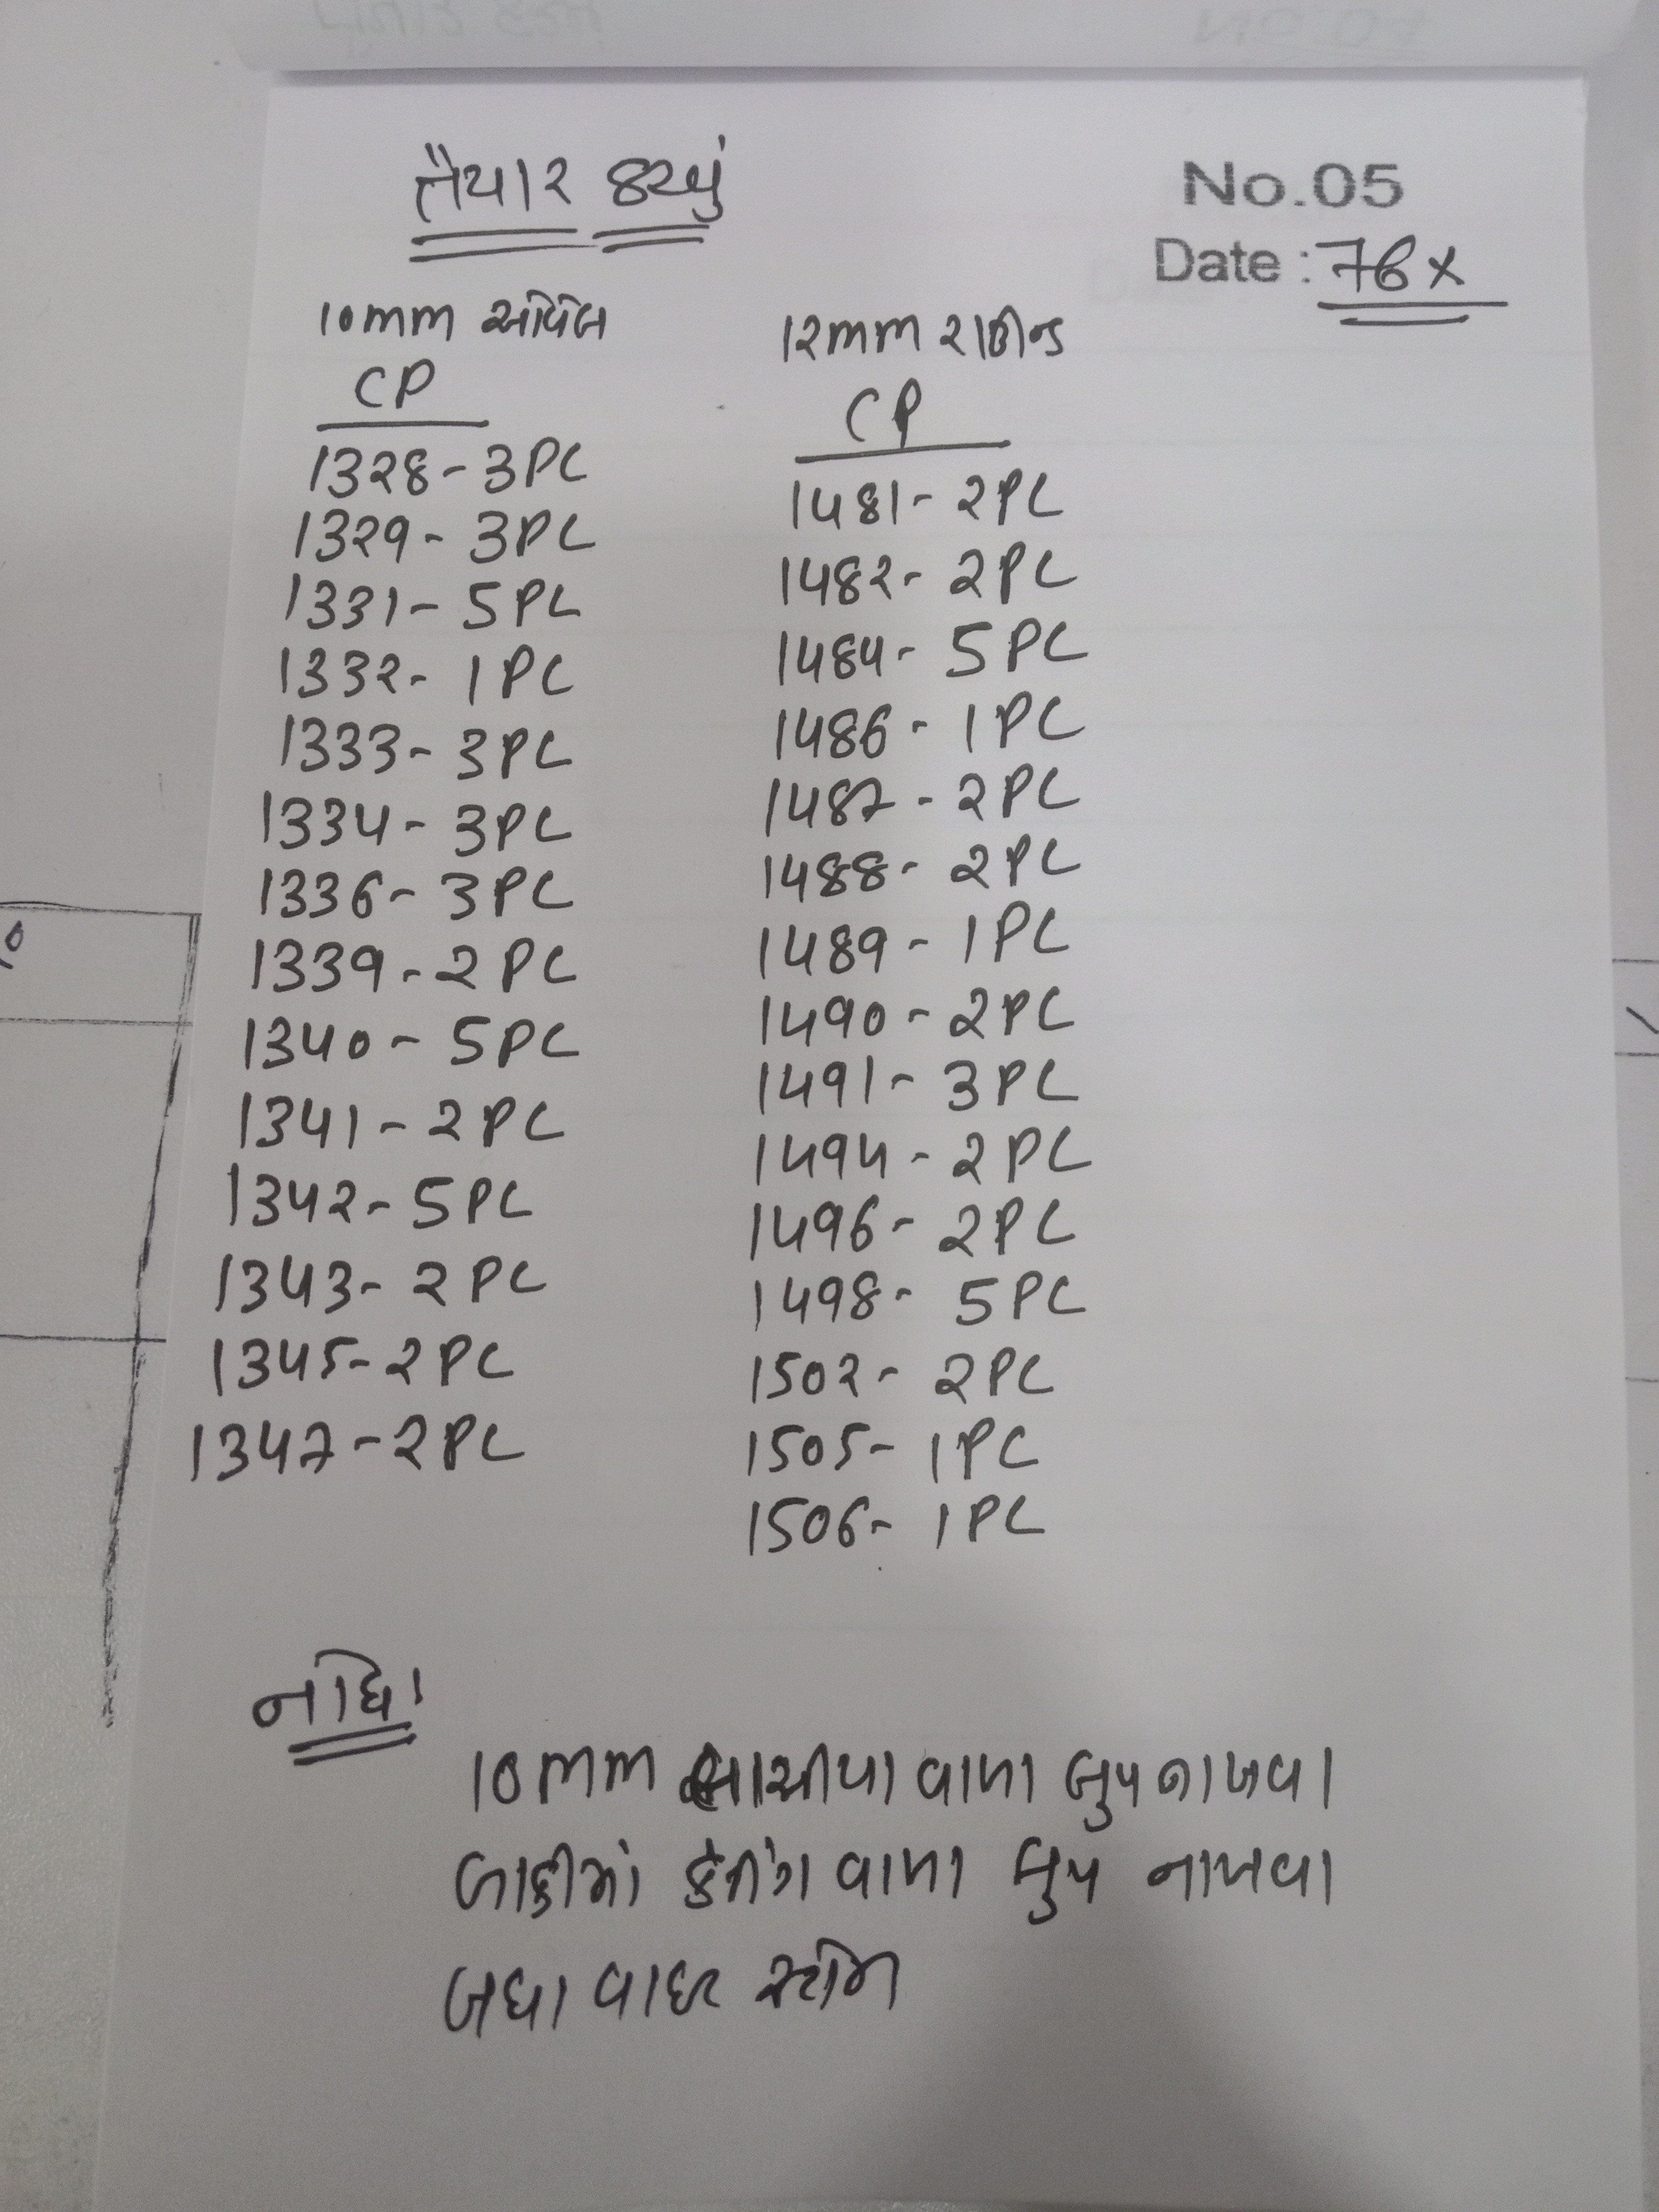 તૈયાર કરવું
No.05
Date : 76 x
10mm ઓવેલ
CP
1328 - 3PC
1329 - 3PC
1331 - 5PC
1332 - 1PC
1333 - 3PC
1334 - 3PC
1336 - 3PC
1339 - 2PC
1340 - 5PC
1341 - 2PC
1342 - 5PC
1343 - 2PC
1345 - 2PC
1347 - 2PC
12mm રાઉન્ડ
CP
1481 - 2PC
1482 - 2PC
1484 - 5PC
1486 - 1PC
1487 - 2PC
1488 - 2PC
1489 - 1PC
1490 - 2PC
1491 - 3PC
1494 - 2PC
1496 - 2PC
1498 - 5PC
1502 - 2PC
1505 - 1PC
1506 - 1PC
નોંધ:
10mm વાળા લુપ નાખવા
બાકીમાં વાળા લુપ નાખવા
બધા વાઇટ સ્ટોન